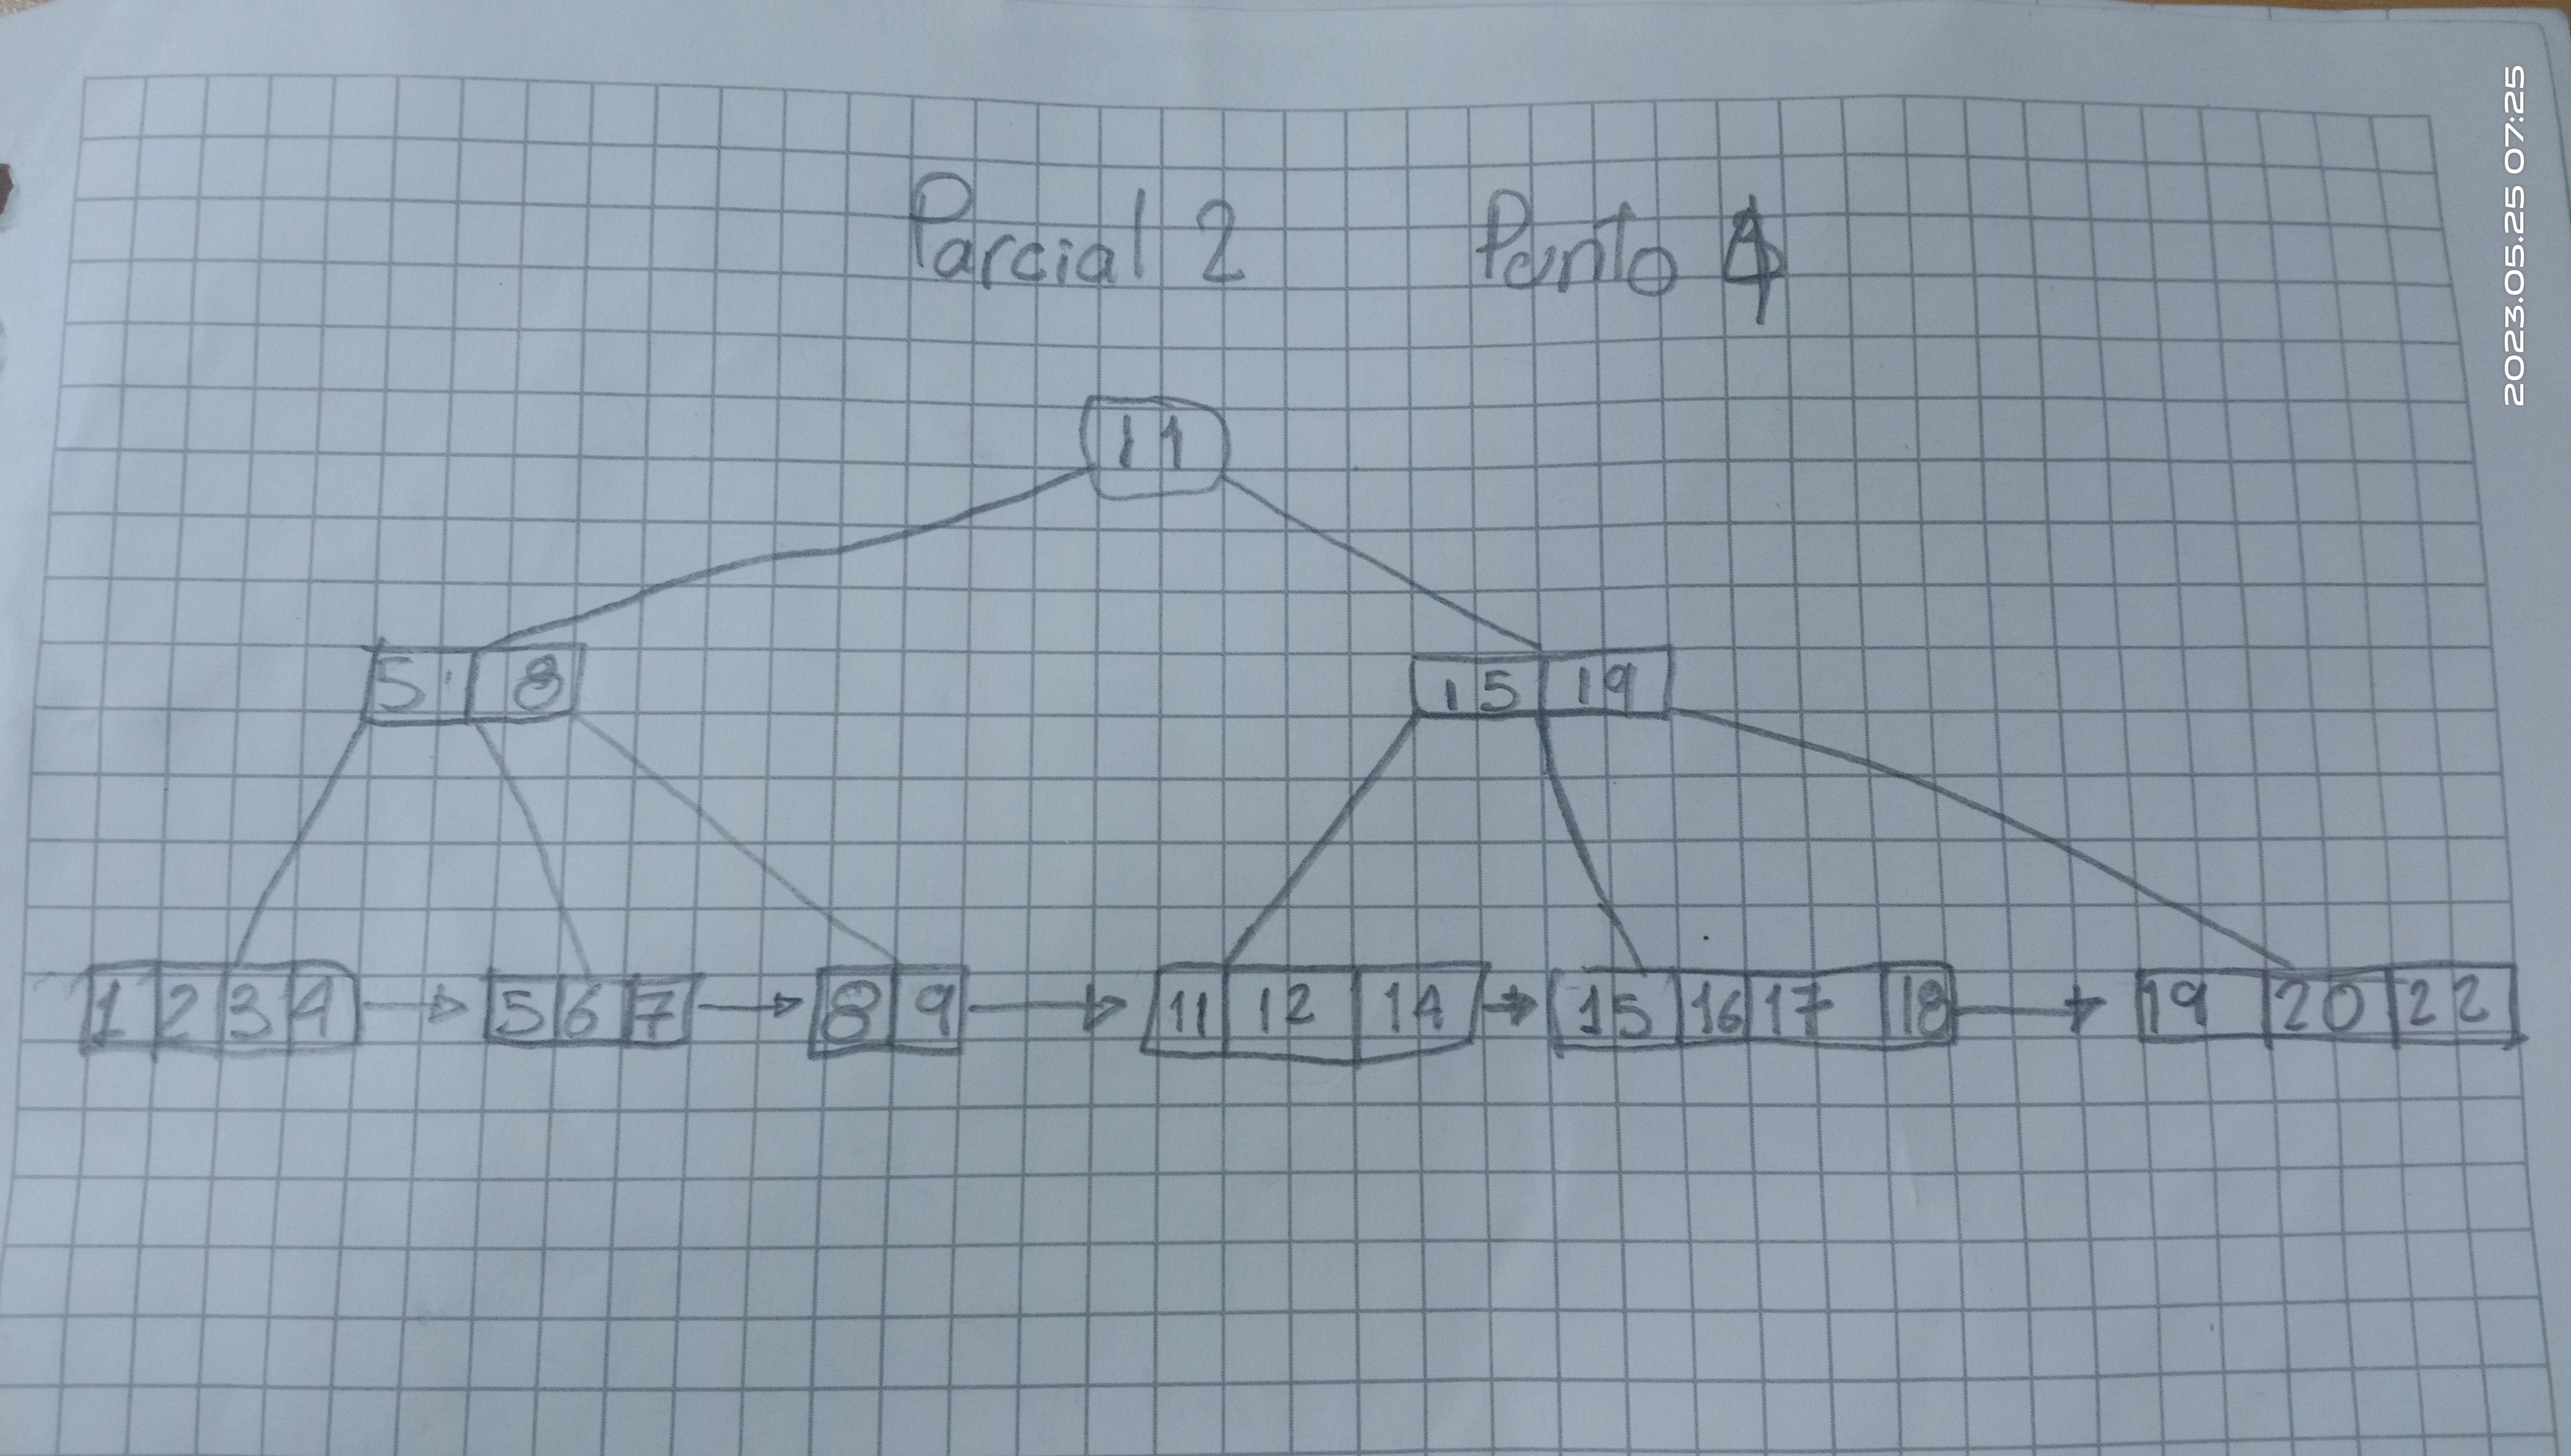 Parcial 2 Punto 4
11
5 8 15 19
1 2 3 4 5 6 7 8 9 11 12 14 15 16 17 18 19 20 22
2023.05.25 07:25